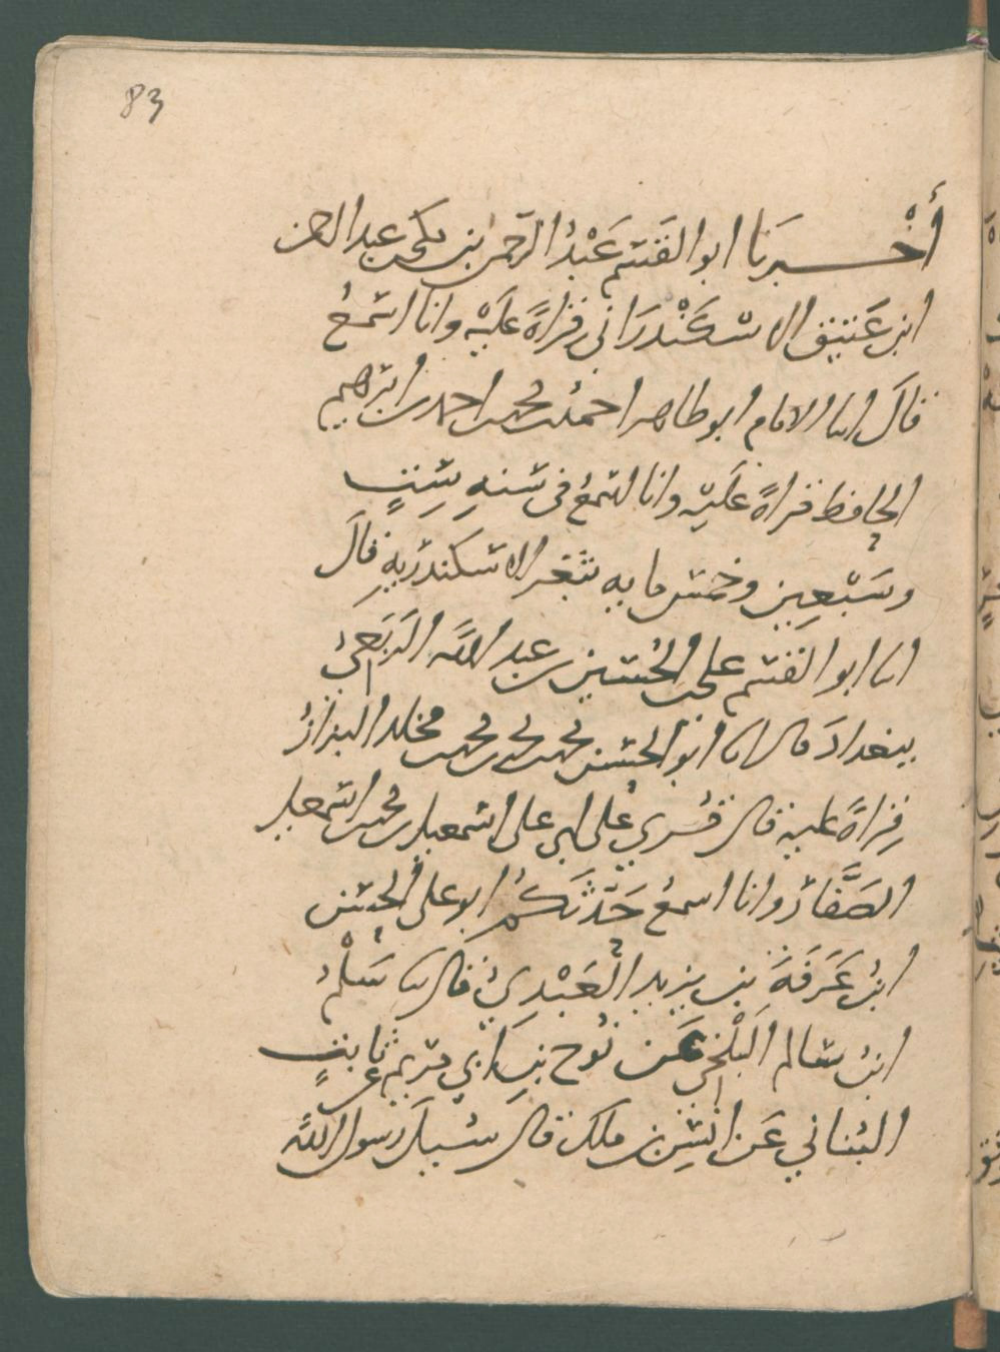 83
أَخْبرنَا ابو القسم عَبْدُ الرَّحمن بن مكى بن عبد الرحمن
ابن عَتيق الاسكَنْدرَانى قراةً عليْه وانا اسمعُ
قالَ انا الامام ابو طاهر احمدُ بن محمد بن احمد بن ابرهيم
الحافظ قراةً عَليه وانا اسمعُ فى سنه ستٍ
وسَبْعين وخمس مايه بثغر الاسكندريه قالَ
انا ابو القسم على بن الحُسين بن عبد اللَّه الرَبَعىُ
ببغدادَ قال انا ابو الحسن محمد بن محمد بن محمد بن مخلد البزازُ
قِراةً عليه قال قُرى على ابى على اسمعيل بن محمد بن اسمعيل
الصَفَّارُ وانا اسمعُ حَدَّثكمُ ابو على الحسن
ابنُ عَرَفَةَ بن يزيد العَبْدِىُ قال ثنا سَلْمُ
ابنُ سالم البَلْخى عَن نُوح بنِ ابي مريم عن ثابتٍ
البُناني عَن انسِ بن ملك قال سُيلَ رسول اللَّه